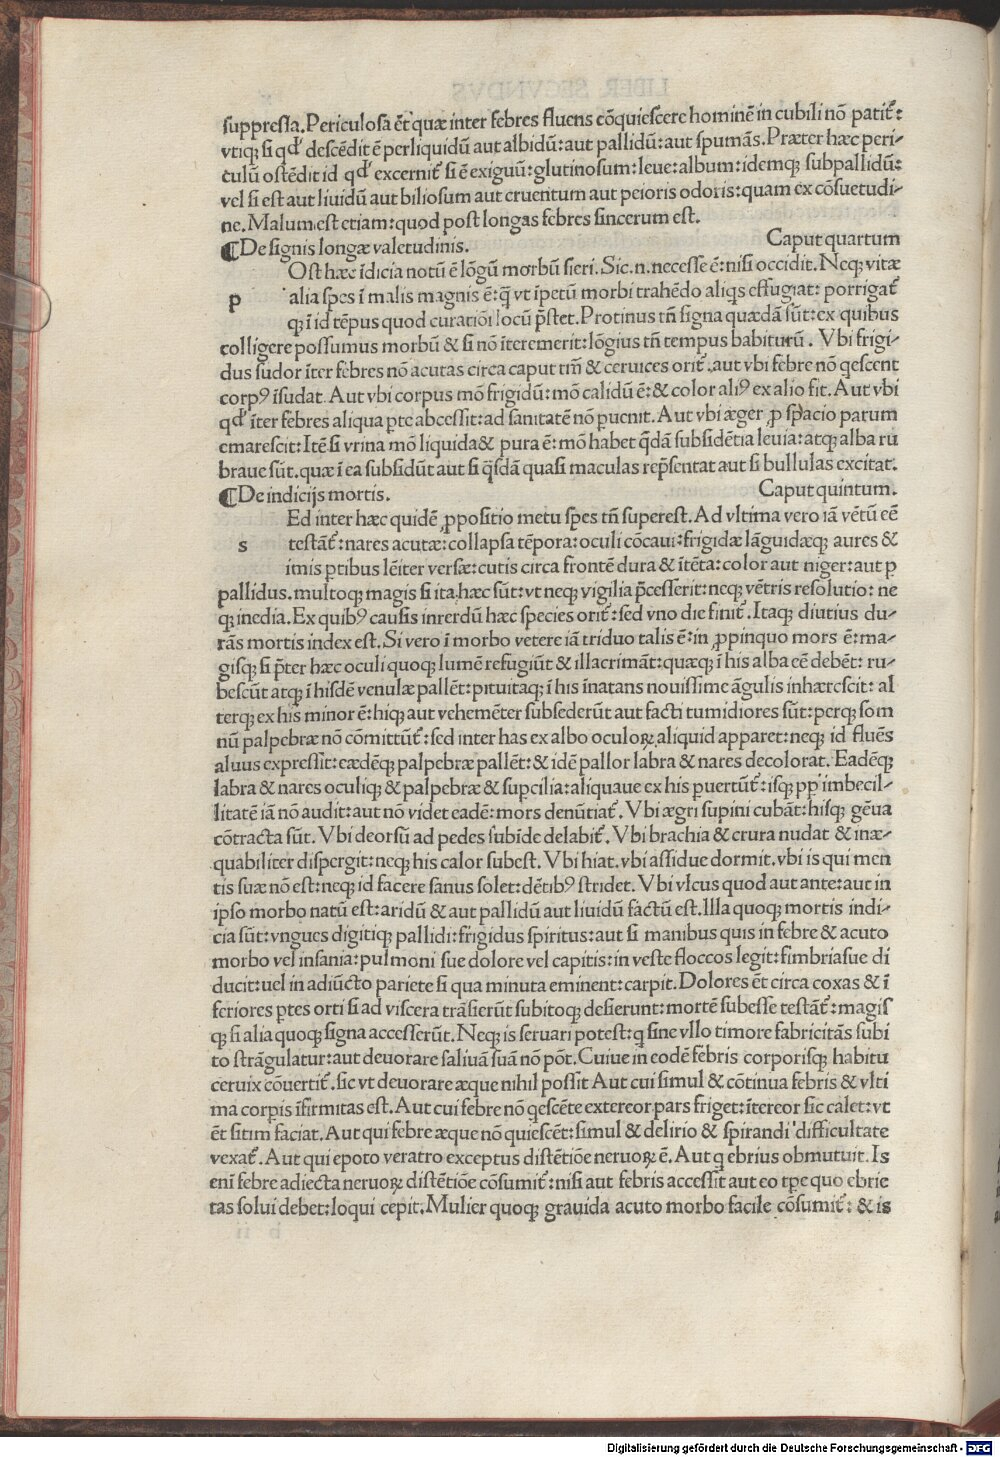 suppressa. Periculosa ēt quæ inter febres fluens cōquiescere hominē in cubili nō patit̄:
vtiqꝫ si qd' descēdit ē perliquidū aut albidū: aut pallidū: aut spumās. Præter hæc peri-
culū ostēdit id qd' excernit̄ si ē exiguū: glutinosum: leue: album: idemqꝫ subpallidū:
vel si est aut liuidū aut biliosum aut cruentum aut peioris odoris: quam ex cōsuetudi-
ne. Malum est etiam: quod post longas febres sincerum est.
¶De signis longæ valetudinis. Caput quartum
Ost hæc īdicia notū ē lōgū morbū fieri. Sic .n. necesse ē: nisi occidit. Neqꝫ vitæ
p alia spes ī malis magnis ē: q̄ vt īpetū morbi trahēdo aliqs effugiat: porrigat̄
qꝫ ī id tēpus quod curatiōi locū p̄stet. Protinus tn̄ signa quædā sūt: ex quibus
colligere possumus morbū & si nō īteremerit: lōgius tn̄ tempus habiturū. Vbi frigi-
dus sudor īter febres nō acutas circa caput tm̄ & ceruices orit̄. aut vbi febre nō qescent
corpꝰ īsudat. Aut vbi corpus mō frigidū: mō calidū ē: & color aliꝰ ex alio fit. Aut vbi
qd' īter febres aliqua ꝑte abcessit: ad sanitatē nō ꝑuenit. Aut vbi æger ꝓ spacio parum
emarescit: Itē si vrina mō liquida & pura ē: mō habet q̄dā subsidētia leuia: atqꝫ alba ru
braue sūt. quæ ī ea subsidūt aut si q̄sdā quasi maculas rep̄sentat aut si bullulas excitat.
¶De indicijs mortis. Caput quintum.
Ed inter hæc quidē ꝓpositio metu spes tn̄ superest. Ad vltima vero iā vētū eē
s testāt̄: nares acutæ: collapsa tēpora: oculi cōcaui: frigidæ lāguidæqꝫ aures &
imis ꝑtibus lēiter versæ: cutis circa frontē dura & ītēta: color aut niger: aut ꝑ
pallidus. multoqꝫ magis si ita hæc sūt: vt neqꝫ vigilia p̄cesserit: neqꝫ vētris resolutio: ne
qꝫ inedia. Ex quibꝰ causis inrerdū hæc species orit̄: sed vno die finit̄. Itaqꝫ diutius du-
rās mortis index est. Si vero ī morbo vetere iā triduo talis ē: in ꝓpinquo mors ē: ma-
gisqꝫ si p̄ter hæc oculi quoqꝫ lumē refugiūt & illacrimāt: quæqꝫ ī his alba eē debēt: ru-
bescūt atqꝫ ī hisdē venulæ pallēt: pituitaqꝫ ī his īnatans nouissime āgulis inhærescit: al
terqꝫ ex his minor ē: hiqꝫ aut vehemēter subsederūt aut facti tumidiores sūt: perqꝫ som
nū palpebræ nō cōmittūt̄: sed inter has ex albo oculoꝝ aliquid apparet: neqꝫ id fluēs
aluus expressit: eædēqꝫ palpebræ pallēt: & idē pallor labra & nares decolorat. Eadēqꝫ
labra & nares oculiqꝫ & palpebræ & suꝑcilia: aliquaue ex his ꝑuertūt̄: isqꝫ ꝓp' imbecil-
litatē iā nō audit: aut nō videt eadē: mors denūtiat̄. Vbi ægri supini cubāt: hisqꝫ gēua
cōtracta sūt. Vbi deorsū ad pedes subīde delabit̄. Vbi brachia & crura nudat & inæ-
quabiliter dispergit: neqꝫ his calor subest. Vbi hiat. vbi assidue dormit. vbi is qui men
tis suæ nō est: neqꝫ id facere sanus solet: dētibꝰ stridet. Vbi vlcus quod aut ante: aut in
ipso morbo natū est: aridū & aut pallidū aut liuidū factū est. Illa quoqꝫ mortis indi-
cia sūt: vngues digitiqꝫ pallidi: frigidus spiritus: aut si manibus quis in febre & acuto
morbo vel insania: pulmoni sue dolore vel capitis: in veste floccos legit: fimbriasue di
ducit: uel in adiūcto pariete si qua minuta eminent: carpit. Dolores ēt circa coxas & ī
feriores ꝑtes orti si ad viscera trāsierūt subitoqꝫ desierunt: mortē subesse testāt̄: magis
qꝫ si alia quoqꝫ signa accesserūt. Neqꝫ is seruari potest: q sine vllo timore fabricitās subi
to strāgulatur: aut deuorare saliuā suā nō pōt. Cuiue in eodē febris corporisqꝫ habitu
ceruix cōuertit̄. sic vt deuorare æque nihil possit Aut cui simul & cōtinua febris & vlti
ma corꝑis īfirmitas est. Aut cui febre nō qescēte extereor pars friget: ītereor sic calet: vt
ēt sitim faciat. Aut qui febre æque nō quiescēt: simul & delirio & spirandi difficultate
vexat̄. Aut qui epoto veratro exceptus distētiōe neruoꝝ ē. Aut q ebrius obmutuit. Is
eni febre adiecta neruoꝝ distētiōe cōsumit̄: nisi aut febris accessit aut eo tꝑe quo ebrie
tas solui debet: loqui cepit. Mulier quoqꝫ grauida acuto morbo facile cōsumit̄: & is
Digitalisierung gefördert durch die Deutsche Forschungsgemeinschaft - DFG